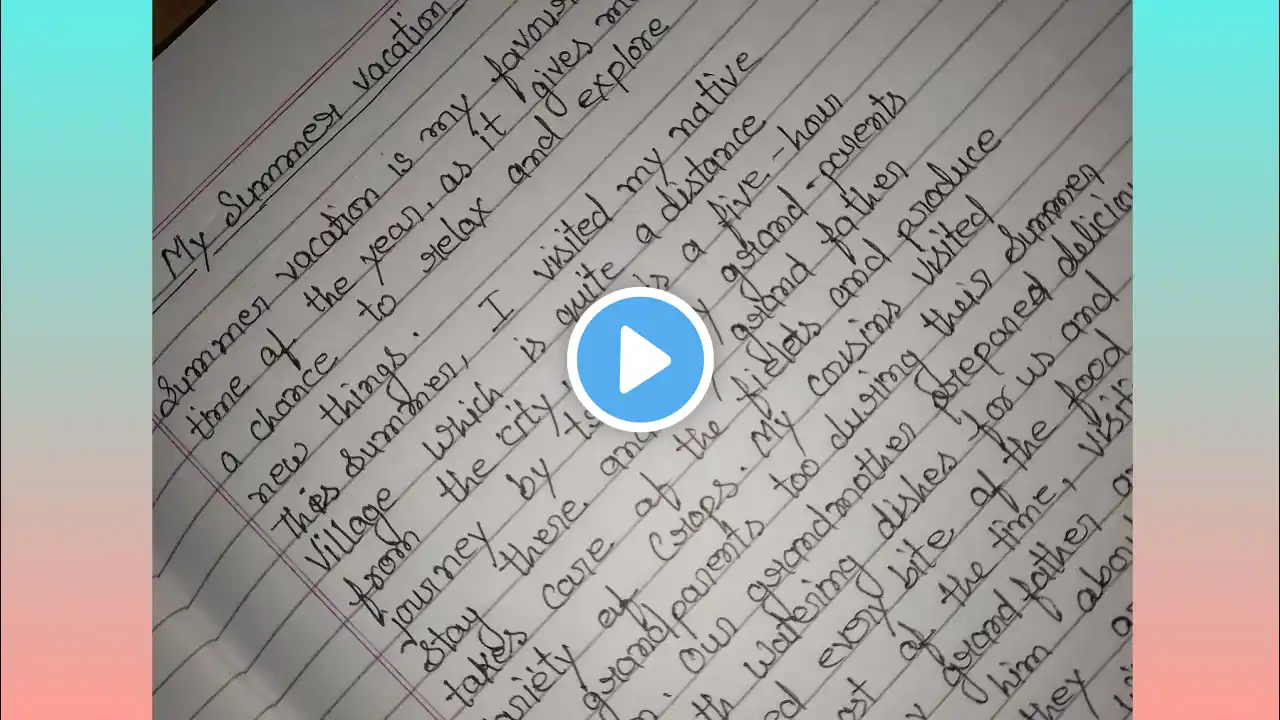 My Summer vacation
Summer vacation is my
time of the year, as it gives
a chance to relax and explore
new things.
this Summer, I visited my native
Village which is quite a distance
from the city, is a five-hour
journey by grand-parents
Stay there and grand father
takes care of the fields and produce
variety of crops. My cousins visited
grandparents too during their Summer
our grandmother prepared
watering dishes for us and
every bite of the food
of the time, visit
grand father
him
they